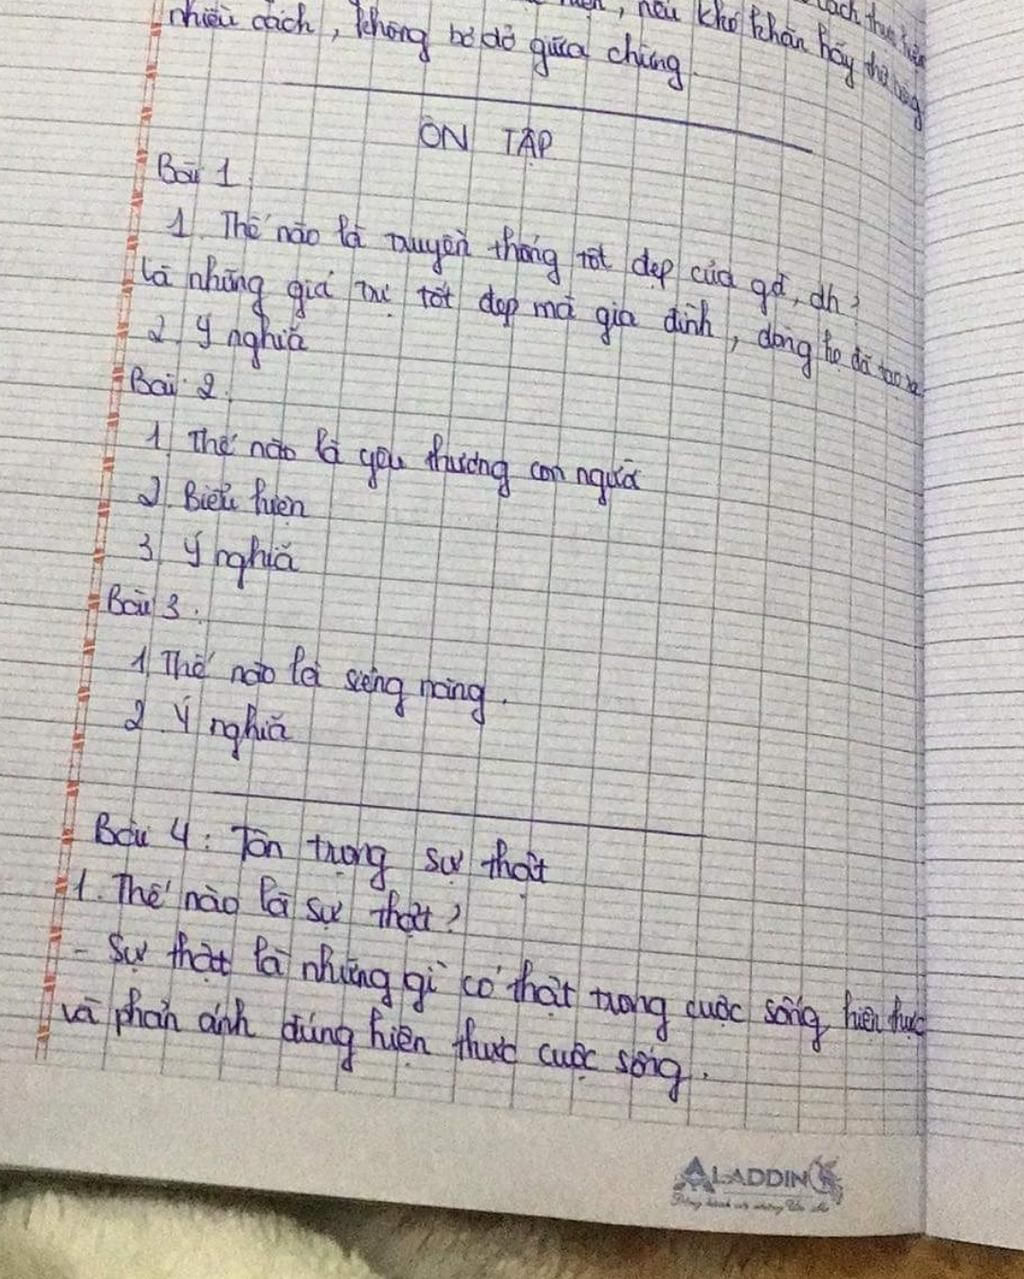 cách thực hiện
hiện, nếu khó khăn hãy thử bằng
nhiều cách, không bỏ dở giữa chừng.
ÔN TẬP
Bài 1.
1. Thế nào là truyền thống tốt đẹp của gđ, dh?
là những giá trị tốt đẹp mà gia đình, dòng họ đã tạo ra
2. Ý nghĩa
Bài 2.
1. Thế nào là yêu thương con người
2. Biểu hiện
3. Ý nghĩa
Bài 3.
1. Thế nào là siêng năng.
2. Ý nghĩa
Bài 4: Tôn trọng sự thật
1. Thế nào là sự thật?
- Sự thật là những gì có thật trong cuộc sống hiện thực
và phản ánh đúng hiện thực cuộc sống.
ALADDIN